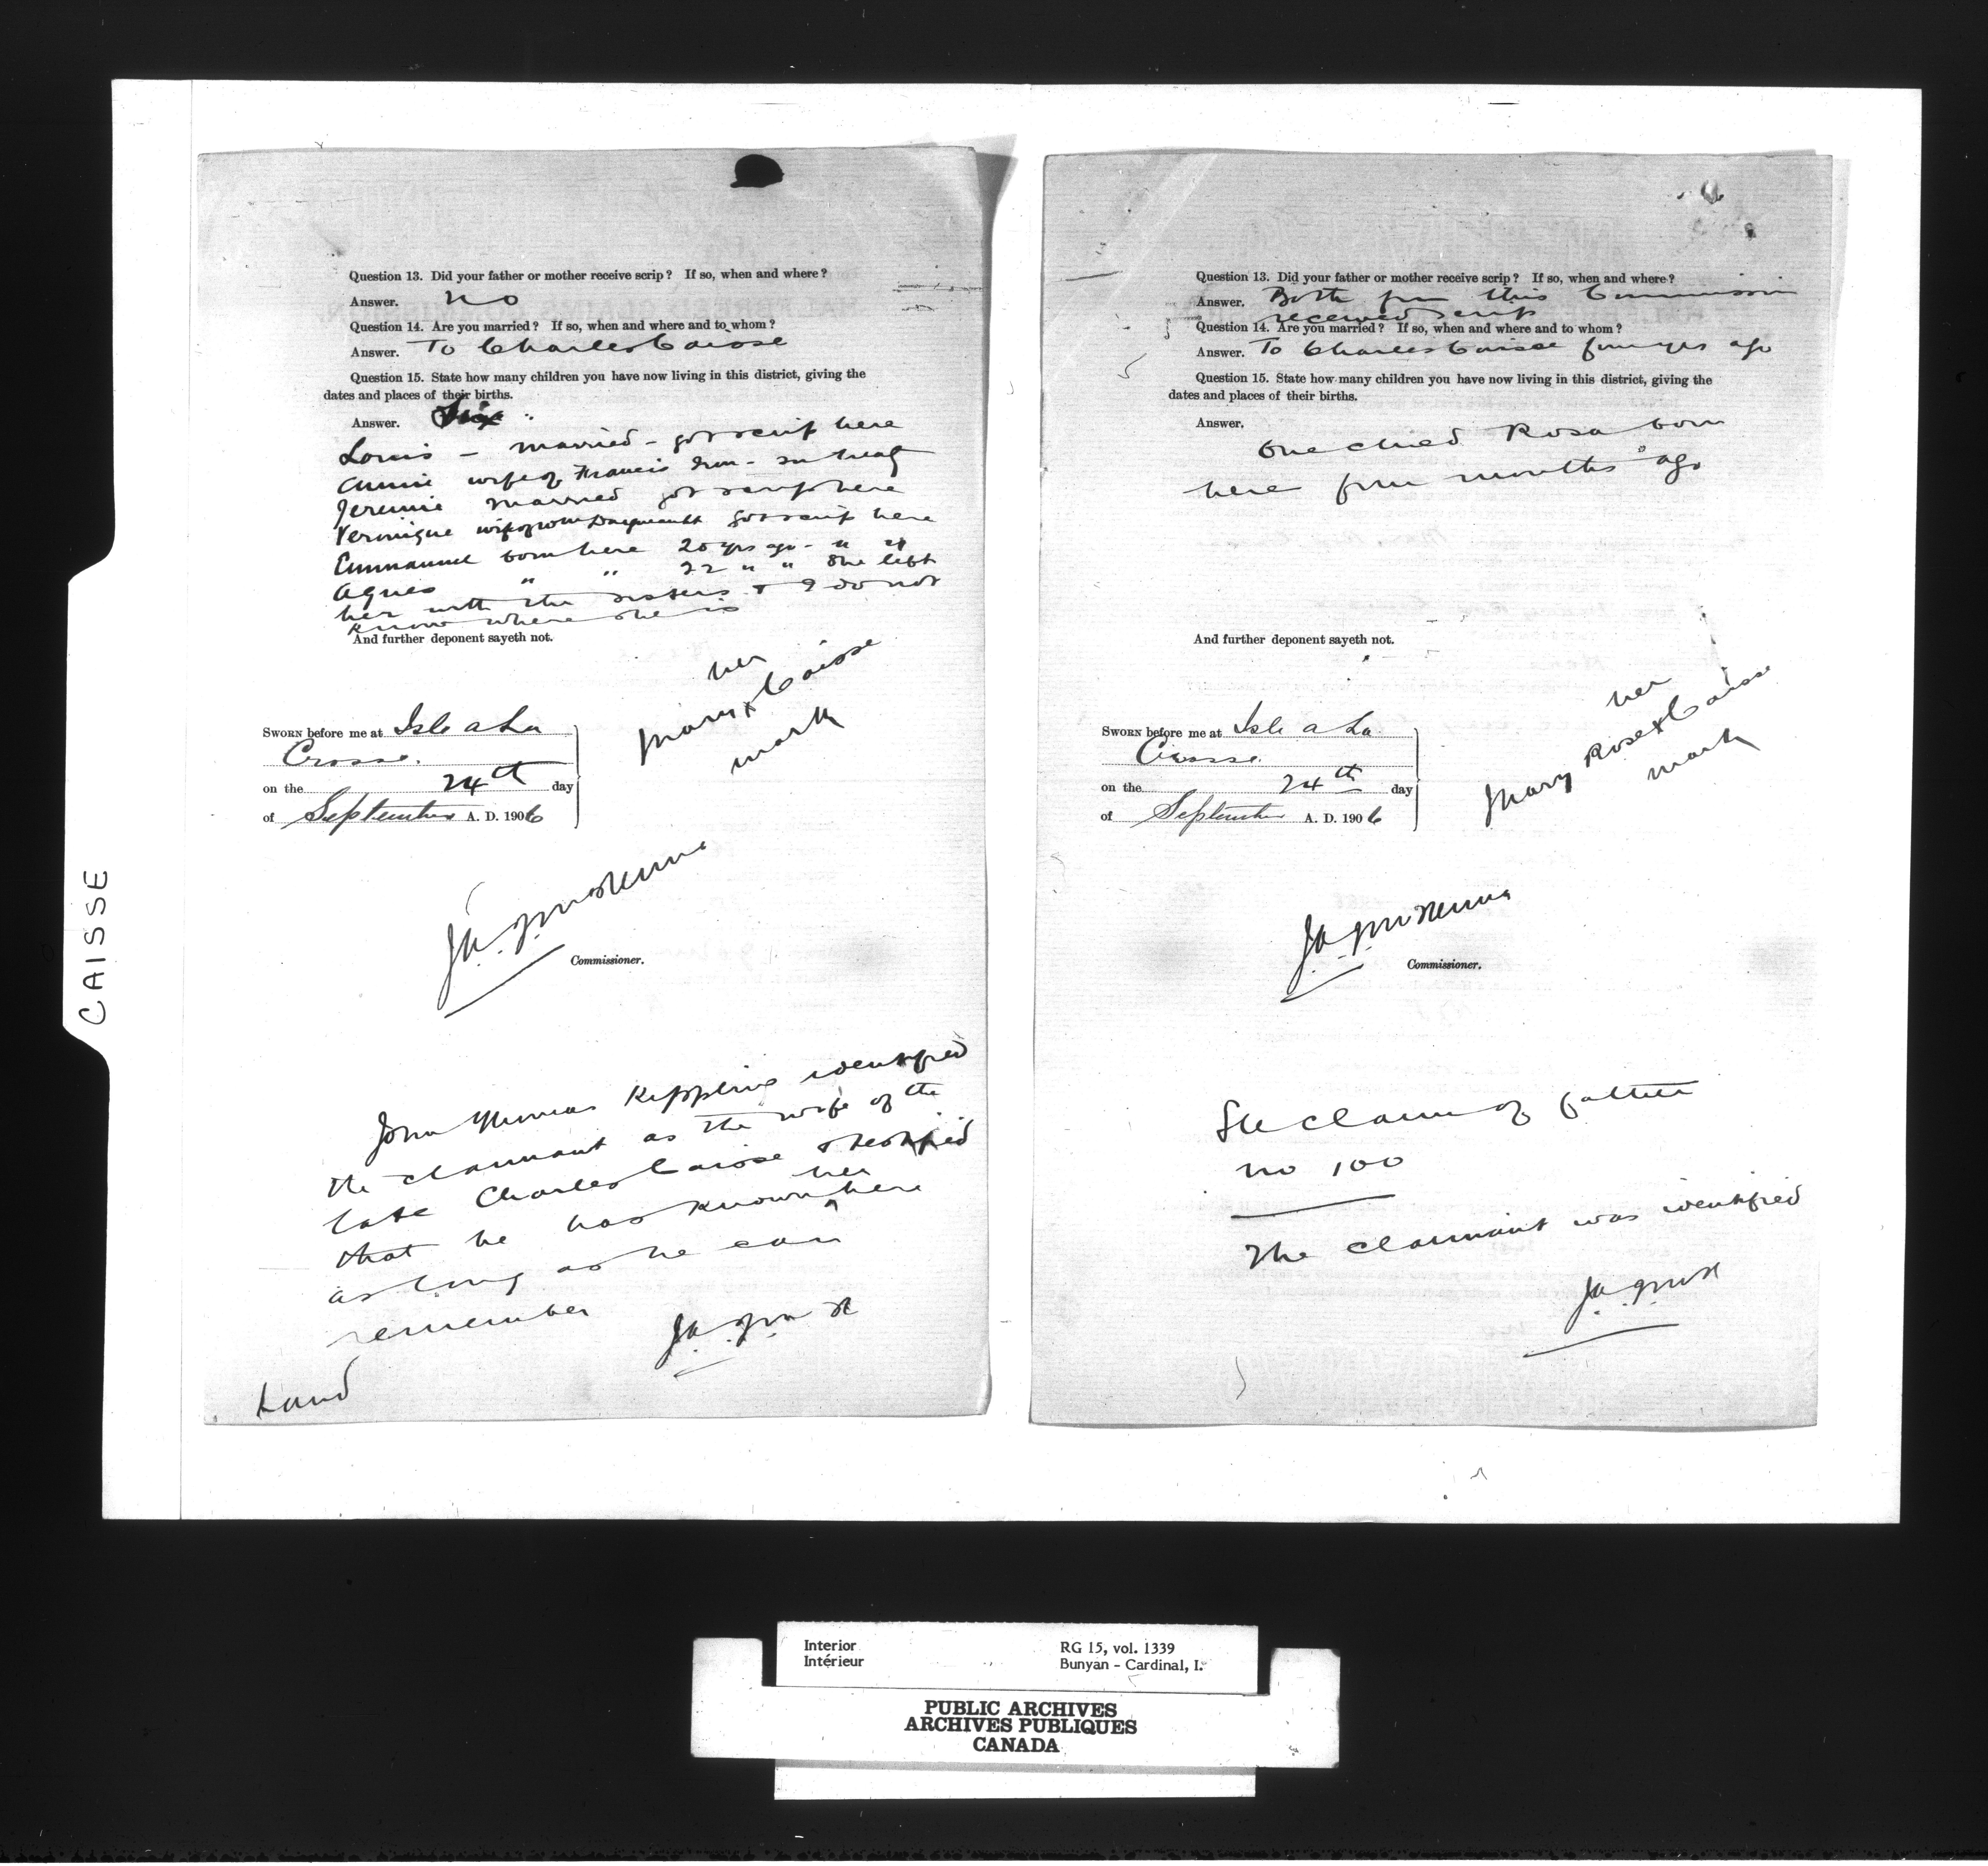 CAISSE
Question 13. Did your father or mother receive scrip? If so, when and where?
Answer. no
Question 14. Are you married? If so, when and where and to whom?
Answer. To Charles Caisse
Question 15. State how many children you have now living in this district, giving the
dates and places of their births.
Answer. Six
Louis - married - got scrip here
Annie wife of Francis - in treaty
Jeremie married got scrip here
Veronique wife of got scrip here
Emmanuel born here 20 yrs ago - " "
Agnes " " 22 " " She left
her with the sisters & I do not
know where she is
And further deponent sayeth not.
her
Mary x Caisse
mark
SWORN before me at Isle a La
Crosse.
on the 24th day
of September A. D. 1906
Commissioner.
John Thomas Kippling identified
the claimant as the wife of the
late Charles Caisse & testified
that he has known her here
as long as he can
remember
Land
Question 13. Did your father or mother receive scrip? If so, when and where?
Answer. Both from this Commission
received scrip
Question 14. Are you married? If so, when and where and to whom?
Answer. To Charles Caisse four yrs ago
Question 15. State how many children you have now living in this district, giving the
dates and places of their births.
Answer.
One child Rosa born
here four months ago
And further deponent sayeth not.
her
Mary Rose x Caisse
mark
SWORN before me at Isle a La
Crosse.
on the 24th day
of September A. D. 1906
Commissioner.
See claim of father
no 100
The claimant was identified
Interior
Intérieur
RG 15, vol. 1339
Bunyan - Cardinal, I.
PUBLIC ARCHIVES
ARCHIVES PUBLIQUES
CANADA